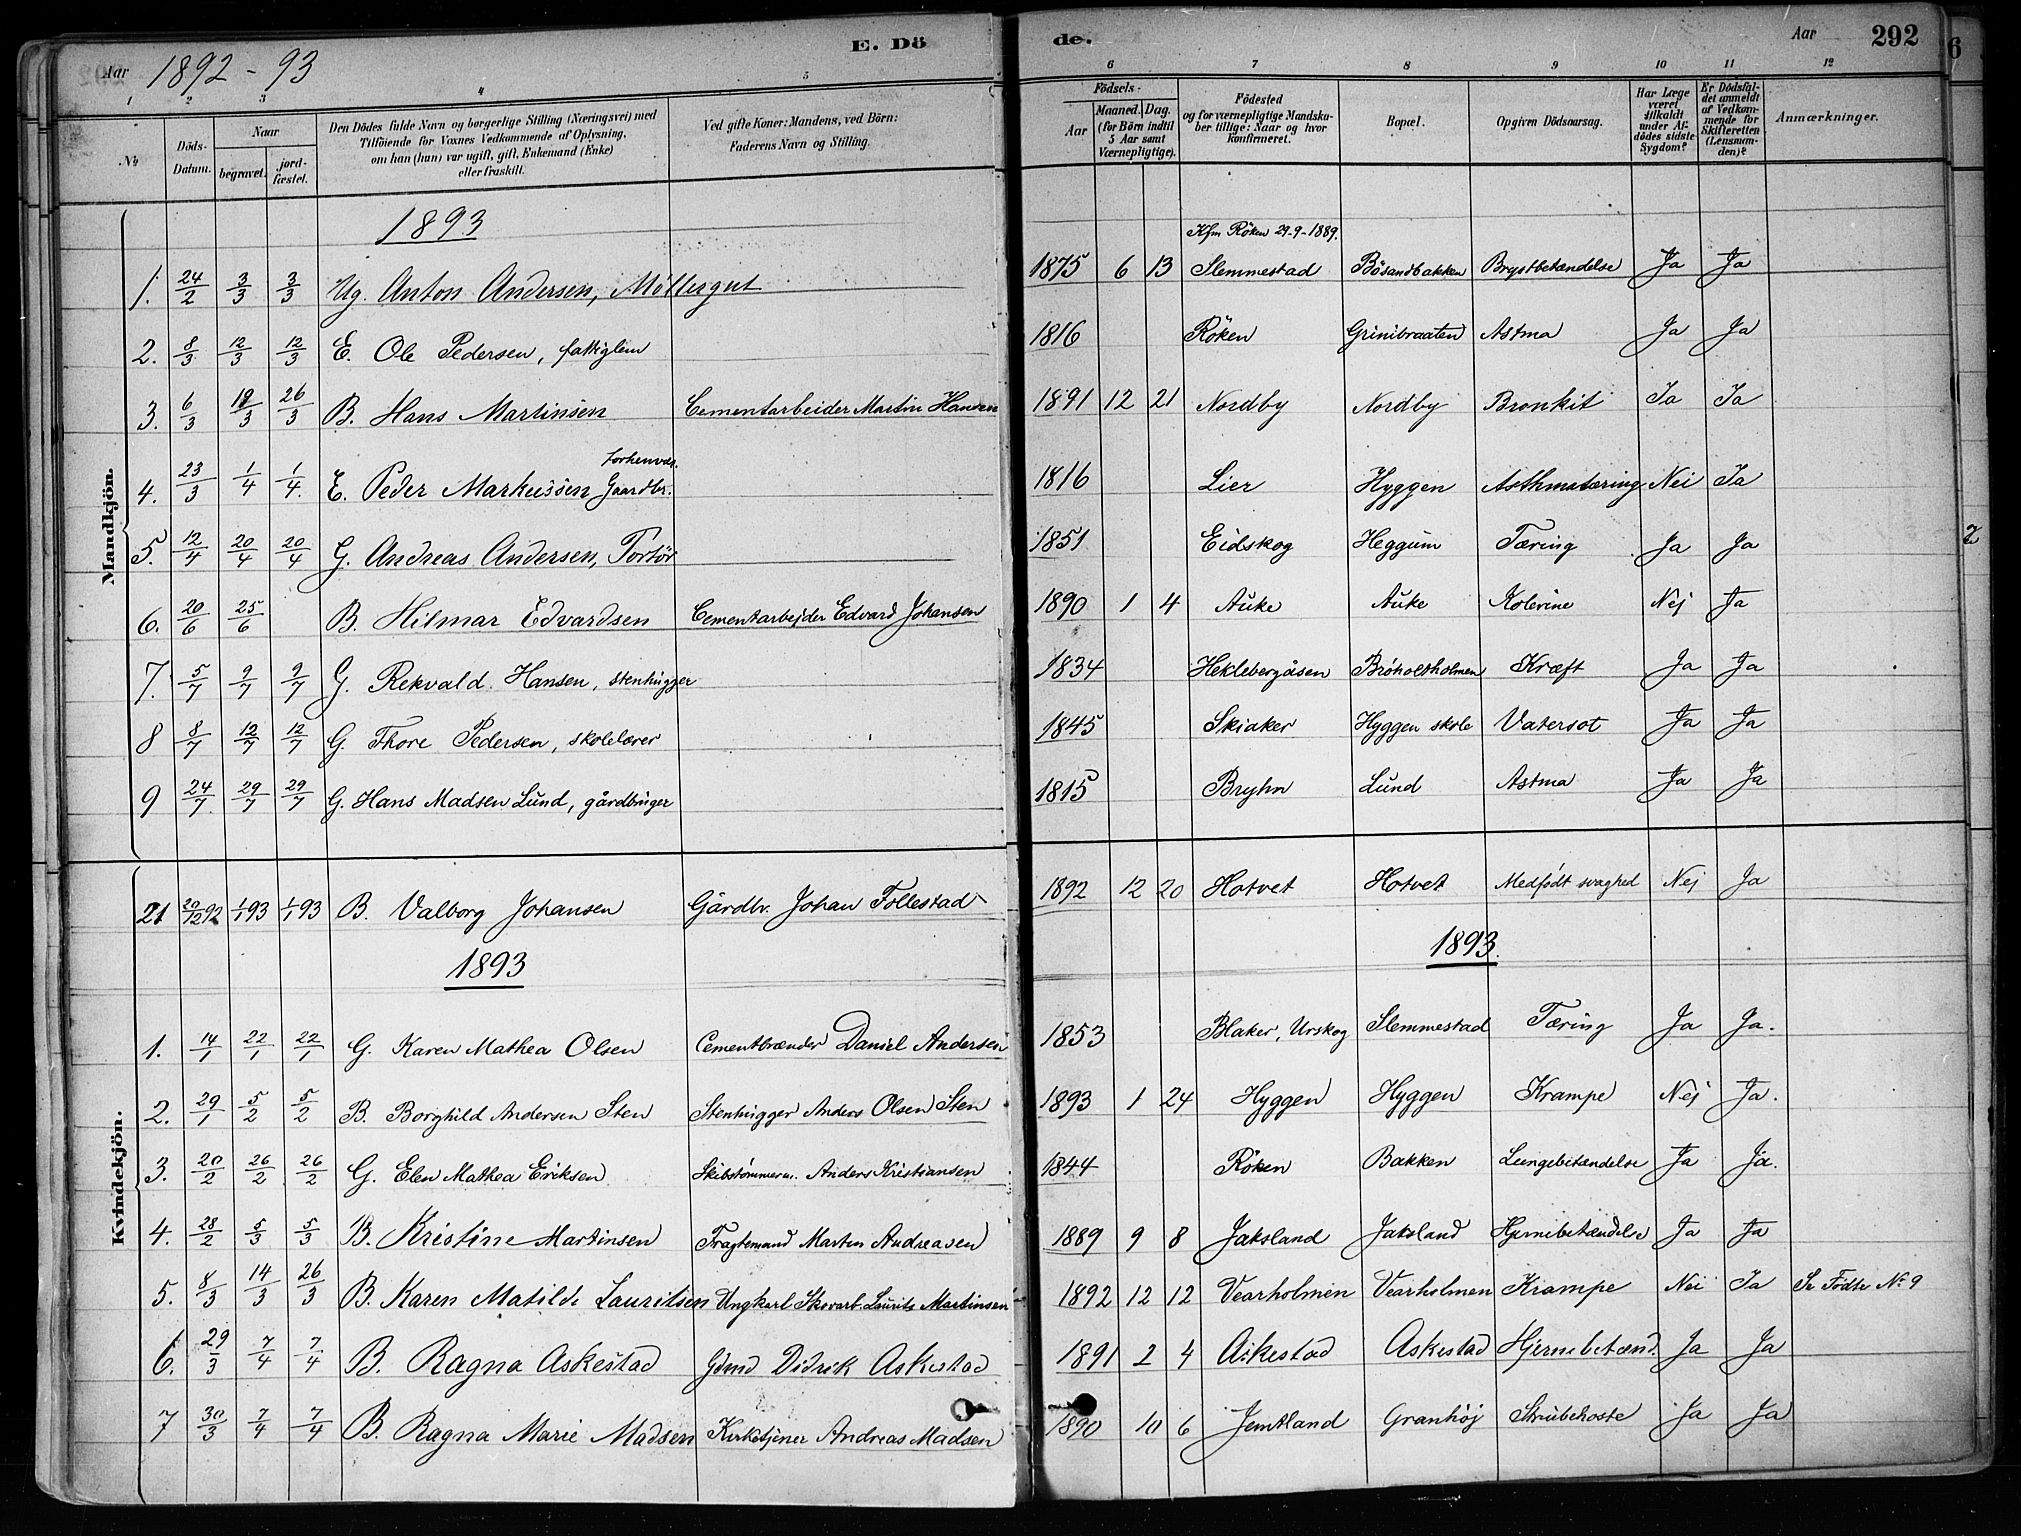 Aar 1892-93 E. Dö de. Aar 292
1 2 3 4 5 6 7 8 9 10 11 12
No Döds-Datum. Naar begravet. jordfæstet. Den Dödes fulde Navn og borgerlige Stilling (Næringsvei) med Tilföiende for Voxnes Vedkommende af Oplysning, om han (hun) var ugift, gift, Enkemand (Enke) eller fraskilt. Ved gifte Koner: Mandens, ved Börn: Faderens Navn og Stilling. Födsels- Aar Maaned. Dag. (for Börn indtil 5 Aar samt Værnepligtige). Födested og for værnepligtige Mandskaber tillige: Naar og hvor Konfirmeret. Bopæl. Opgiven Dödsaarsag. Har Læge været tilkaldt under Afdödes sidste Sygdom? Er Dödsfaldet anmeldt af Vedkommende for Skifteretten (Lensmanden)? Anmærkninger.
Mandkjön.
1893
Kfm Röken 29-9-1889.
1. 24/2 3/3 3/3 Ug. Anton Andersen, Möllergut 1875 6 13 Slemmestad Bösandbakken Brystbetændelse Ja Ja
2. 8/3 12/3 12/3 E. Ole Pedersen, fattiglem 1816 Röken Grinibraaten Astma Ja Ja
3. 6/3 /3 26/3 B. Hans Martinsen Cementarbeider Martin Hansen 1891 12 21 Nordby Nordby Bronkit Ja Ja
forhenvær.
4. 23/3 1/4 1/4. E. Peder Markussen Gaardbr. 1816 Lier Hyggen Asthmatæring Nei Ja
5. 12/4 20/4 20/4 G. Andreas Andersen, 1851 Eidskog Heggum Tæring Ja Ja
6. 20/6 25/6 B. Hilmar Edvardsen Cementarbejder Edvard Johansen 1890 1 4 Auke Auke Kolerine Nej Ja
7. 5/7 9/7 9/7 G. Rekvald Hansen, stenhugger 1834 Heklebergåsen Brøholtholmen Kræft Ja Ja
8 8/7 12/7 12/7 G. Thore Pedersen, skolelærer 1845 Skiaker Hyggen skole Vatersot Ja Ja
9 24/7 29/7 29/7 G. Hans Madsen Lund, gårdbruger 1815 Bryhn Lund Astma Ja Ja
Kvindekjön.
21 20/12 92 1/1 93 1/1 93 B. Valborg Johansen Gårdbr. Johan Follestad 1892 12 20 Hotvet Hotvet Medfødt svaghed Nej Ja
1893 1893.
1. 14/1 22/1 22/1 G. Karen Mathea Olsen Cementbrænder Daniel Andersen 1853 Blaker, Urskog Slemmestad Tæring Ja Ja.
2. 29/1 5/2 5/2 B. Borghild Andersen Sten Stenhugger Anders Olsen Sten 1893 1 24 Hyggen Hyggen Krampe Nej Ja.
3. 20/2 26/2 26/2 G. Elen Mathea Eriksen Skibstømmerm. Anders Kristiansen 1844 Röken Bakken Lungebetændelse Ja Ja.
4. 28/2 5/3 5/3 B. Kristine Martinsen Fragtemand Martin Andreasen 1889 9 8 Jaksland Jaksland Hjernebetændelse Ja Ja
5. 8/3 14/3 26/3 B. Karen Matilde Lauritsen Ungkarl Skovarb. Laurits Martinsen 1892 12 12 Vearholmen Vearholmen Krampe Nei Ja Se Födte No 9
6. 29/3 7/4 7/4 B. Ragna Askestad Gdmd Didrik Askestad 1891 2 4 Askestad Askestad Hjernebetænd. Ja Ja
7 30/3 7/4 7/4 B. Ragna Marie Madsen Kirketjener Andreas Madsen 1890 10 6 Jemtland Granhöj Strubehoste Ja Ja